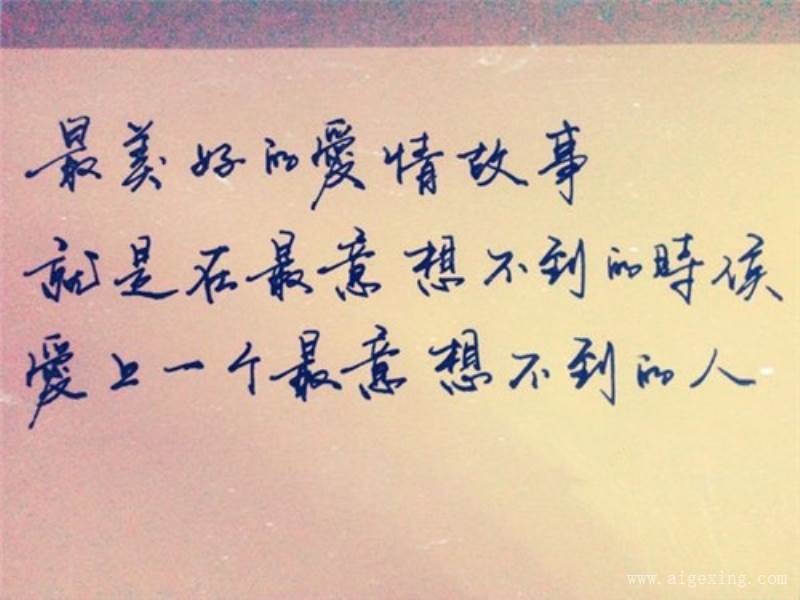 最美好的愛情故事
就是在最意想不到的時候
愛上一个最意想不到的人
www.aigexing.com